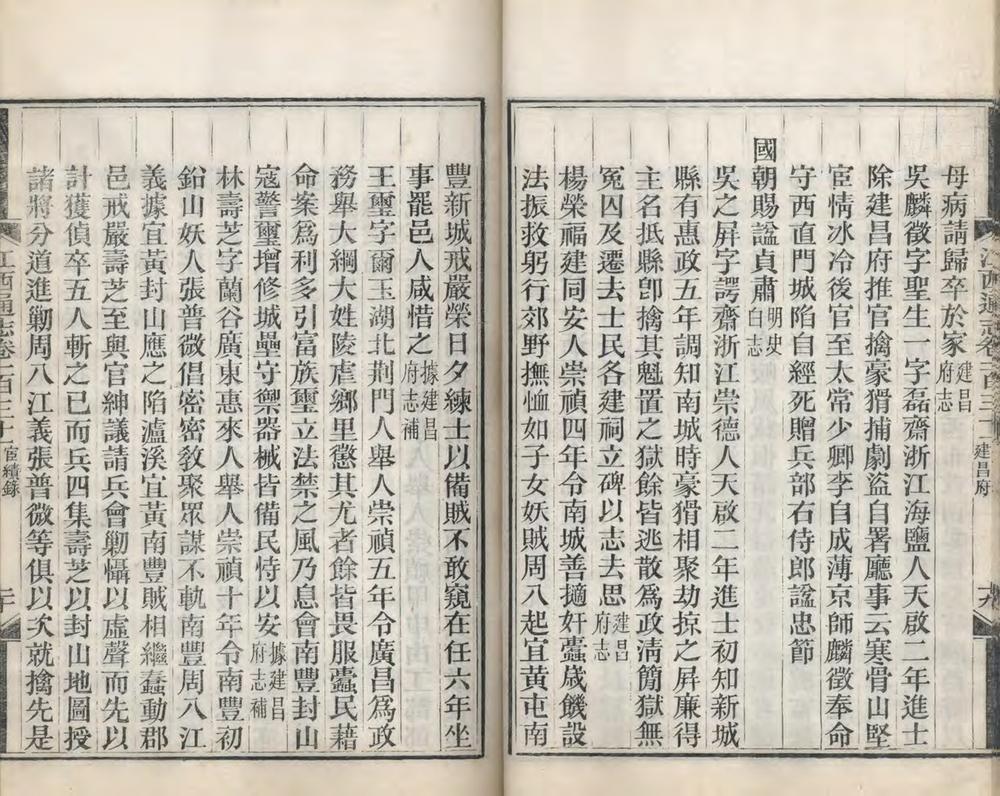 江西通志卷一百三十 建昌府
母病請歸卒於家建昌府志
吳麟徵字聖生一字磊齋浙江海鹽人天啟二年進士
除建昌府推官擒豪猾捕劇盜自署廳事云寒骨山堅
宦情冰冷後官至太常少卿李自成薄京師麟徵奉命
守西直門城陷自經死贈兵部右侍郎諡忠節
國朝賜諡貞肅明史白志
吳之屏字諤齋浙江崇德人天啟二年進士初知新城
縣有惠政五年調知南城時豪猾相聚劫掠之屏廉得
主名抵縣卽擒其魁置之獄餘皆逃散為政淸簡獄無
冤囚及遷去士民各建祠立碑以志去思建昌府志
楊榮福建同安人崇禎四年令南城善擿奸蠹歲饑設
法振救躬行郊野撫恤如子女妖賊周八起宜黃屯南
豐新城戒嚴榮日夕練士以備賊不敢窺在任六年坐
事罷邑人咸惜之據建昌府志補
王璽字爾玉湖北荆門人舉人崇禎五年令廣昌為政
務舉大綱大姓陵虐鄉里懲其尤者餘皆畏服蠹民藉
命案為利多引富族璽立法禁之風乃息會南豐封山
寇警璽增修城壘守禦器械皆備民恃以安據建昌府志補
林壽芝字蘭谷廣東惠來人舉人崇禎十年令南豐初
鉛山妖人張普微倡密密敎聚眾謀不軌南豐周八江
義據宜黃封山應之陷瀘溪宜黃南豐賊相繼蠢動郡
邑戒嚴壽芝至與官紳議請兵會勦懾以虛聲而先以
計獲偵卒五人斬之已而兵四集壽芝以封山地圖授
諸將分道進勦周八江義張普微等俱以次就擒先是
江西通志卷一百三十 宦績錄 二十